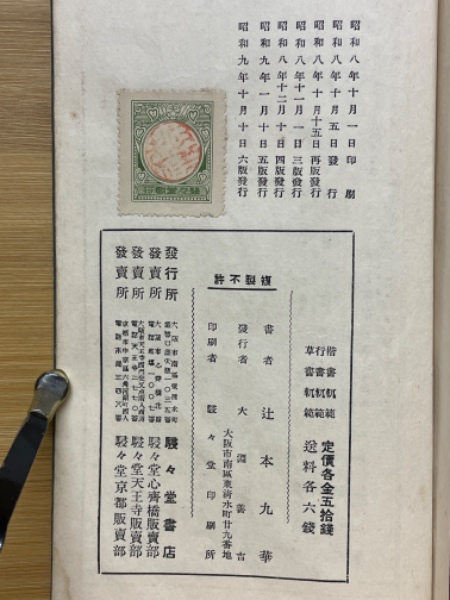 昭和八年十月一日印刷
昭和八年十月五日發行
昭和八年十月十五日再版發行
昭和八年十一月一日三版發行
昭和八年十二月十日四版發行
昭和九年一月十日五版發行
昭和九年十月十日六版發行
複製不許
楷書軌範
行書軌範
草書軌範
定價各金五拾錢
送料各六錢
書者 辻本九華
大阪市南區東淸水町廿九番地
發行者 大淵善吉
印刷者 駸々堂印刷所
發行所
駸々堂書店
發賣所
駸々堂心齊橋販賣部
發賣所
駸々堂天王寺販賣部
發賣所
駸々堂京都販賣部